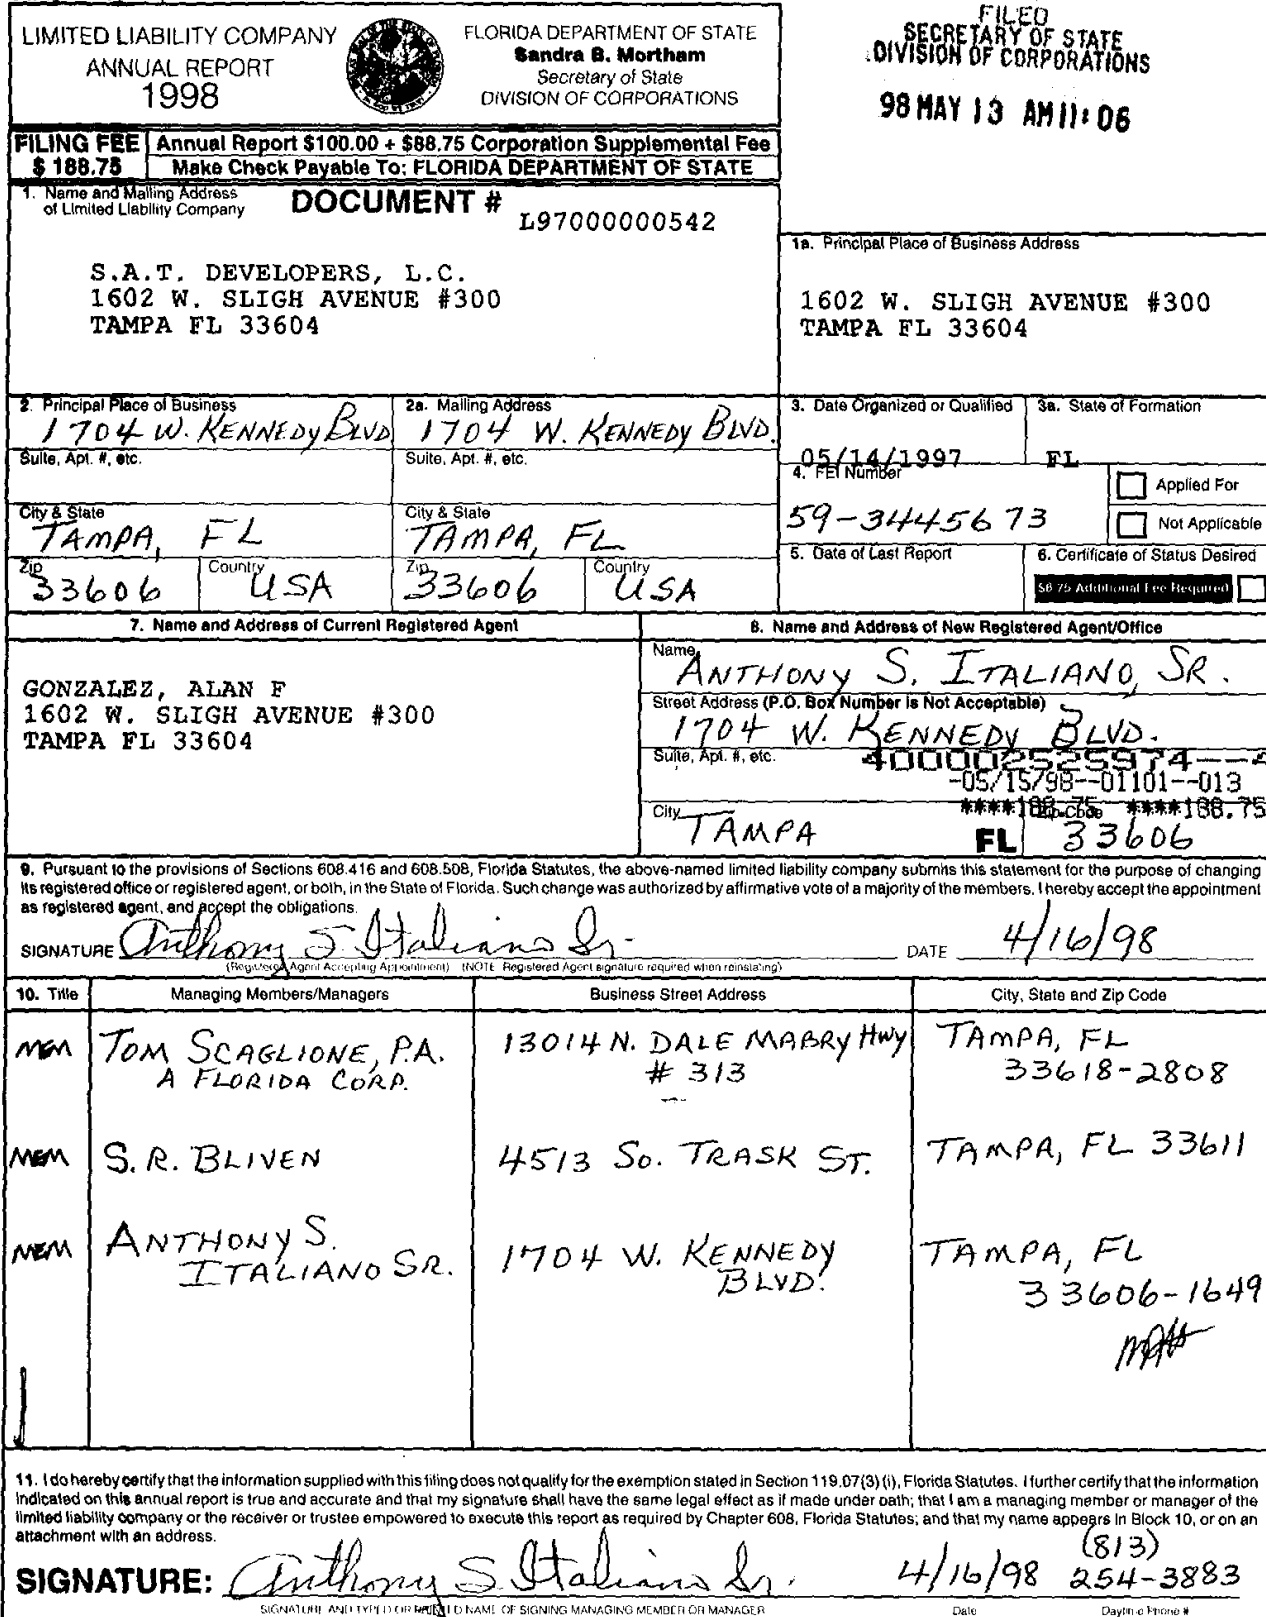 LIMITED LIABILITY COMPANY
ANNUAL REPORT
1998
FLORIDA DEPARTMENT OF STATE
Sandra B. Mortham
Secretary of State
DIVISION OF CORPORATIONS
FILED
SECRETARY OF STATE
DIVISION OF CORPORATIONS
98 MAY 13 AM 11:06
FILING FEE
$ 188.75
Annual Report $100.00 + $88.75 Corporation Supplemental Fee
Make Check Payable To: FLORIDA DEPARTMENT OF STATE
1. Name and Mailing Address
of Limited Liability Company
DOCUMENT #
L97000000542
S.A.T. DEVELOPERS, L.C.
1602 W. SLIGH AVENUE #300
TAMPA FL 33604
1a. Principal Place of Business Address
1602 W. SLIGH AVENUE #300
TAMPA FL 33604
2. Principal Place of Business
1704 W. KENNEDY BLVD
2a. Mailing Address
1704 W. KENNEDY BLVD.
3. Date Organized or Qualified
05/14/1997
3a. State of Formation
FL
Suite, Apt. #, etc.
Suite, Apt. #, etc.
4. FEI Number
59-3445673
Applied For
Not Applicable
City & State
TAMPA, FL
City & State
TAMPA, FL
5. Date of Last Report
6. Certificate of Status Desired
$8.75 Additional Fee Required
Zip
33606
Country
USA
Zip
33606
Country
USA
7. Name and Address of Current Registered Agent
GONZALEZ, ALAN F
1602 W. SLIGH AVENUE #300
TAMPA FL 33604
8. Name and Address of New Registered Agent/Office
Name
ANTHONY S. ITALIANO, SR.
Street Address (P.O. Box Number is Not Acceptable)
1704 W. KENNEDY BLVD.
Suite, Apt. #, etc.
400002525974--4
-05/15/98--01101--013
****188.75 ****188.75
City
TAMPA
FL
Zip Code
33606
9. Pursuant to the provisions of Sections 608.416 and 608.508, Florida Statutes, the above-named limited liability company submits this statement for the purpose of changing
its registered office or registered agent, or both, in the State of Florida. Such change was authorized by affirmative vote of a majority of the members. I hereby accept the appointment
as registered agent, and accept the obligations.
SIGNATURE Anthony S. Italiano Sr. DATE 4/16/98
(Registered Agent Accepting Appointment) (NOTE Registered Agent signature required when reinstating)
10. Title
Managing Members/Managers
Business Street Address
City, State and Zip Code
MEM
TOM SCAGLIONE, P.A.
A FLORIDA CORP.
13014 N. DALE MABRY HWY
# 313
TAMPA, FL
33618-2808
MEM
S.R. BLIVEN
4513 SO. TRASK ST.
TAMPA, FL 33611
MEM
ANTHONY S.
ITALIANO SR.
1704 W. KENNEDY
BLVD.
TAMPA, FL
33606-1649
11. I do hereby certify that the information supplied with this filing does not qualify for the exemption stated in Section 119.07(3)(i), Florida Statutes. I further certify that the information
indicated on this annual report is true and accurate and that my signature shall have the same legal effect as if made under oath; that I am a managing member or manager of the
limited liability company or the receiver or trustee empowered to execute this report as required by Chapter 608, Florida Statutes; and that my name appears in Block 10, or on an
attachment with an address.
SIGNATURE: Anthony S. Italiano Sr. 4/16/98 (813) 254-3883
SIGNATURE AND TYPED OR PRINTED NAME OF SIGNING MANAGING MEMBER OR MANAGER
Date
Daytime Phone #